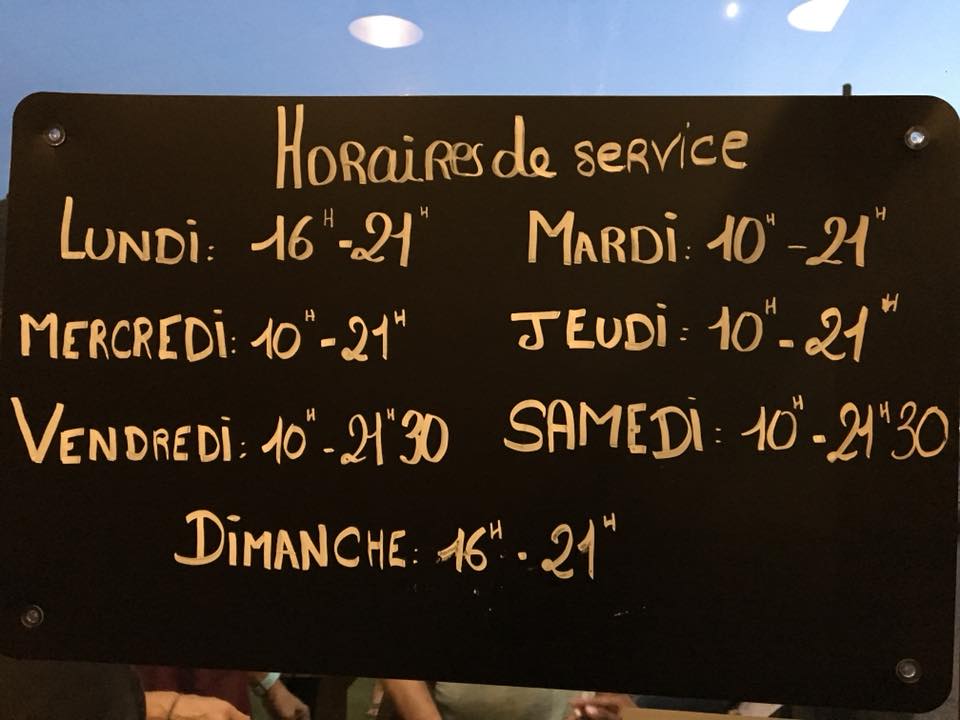 Horaires de service
Lundi: 16H-21H Mardi: 10H-21H
Mercredi: 10H-21H Jeudi: 10H-21H
Vendredi: 10H-21H30 Samedi: 10H-21H30
Dimanche: 16H-21H